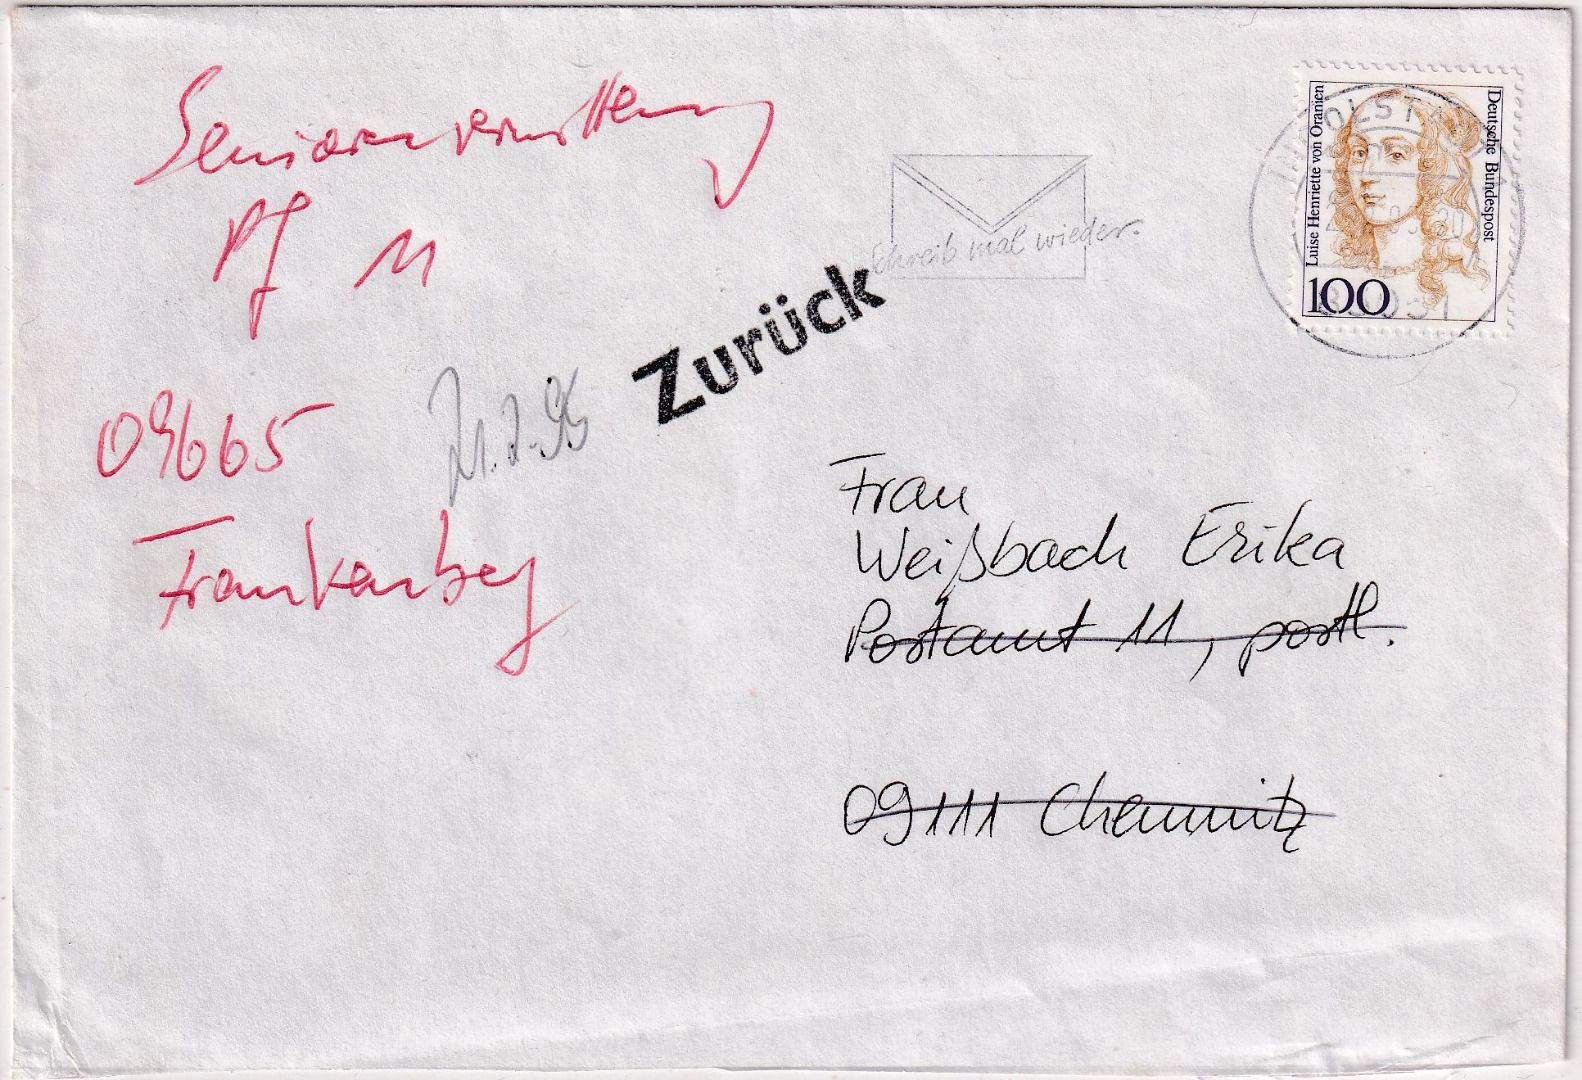 Seniorenvermittlung
Pf 11
09665
Frankenberg
21.7.95
Zurück
Schreib mal wieder.
Deutsche Bundespost
Luise Henriette von Oranien
100
Frau
Weißbach Erika
Postamt 11, postl.
09111 Chemnitz